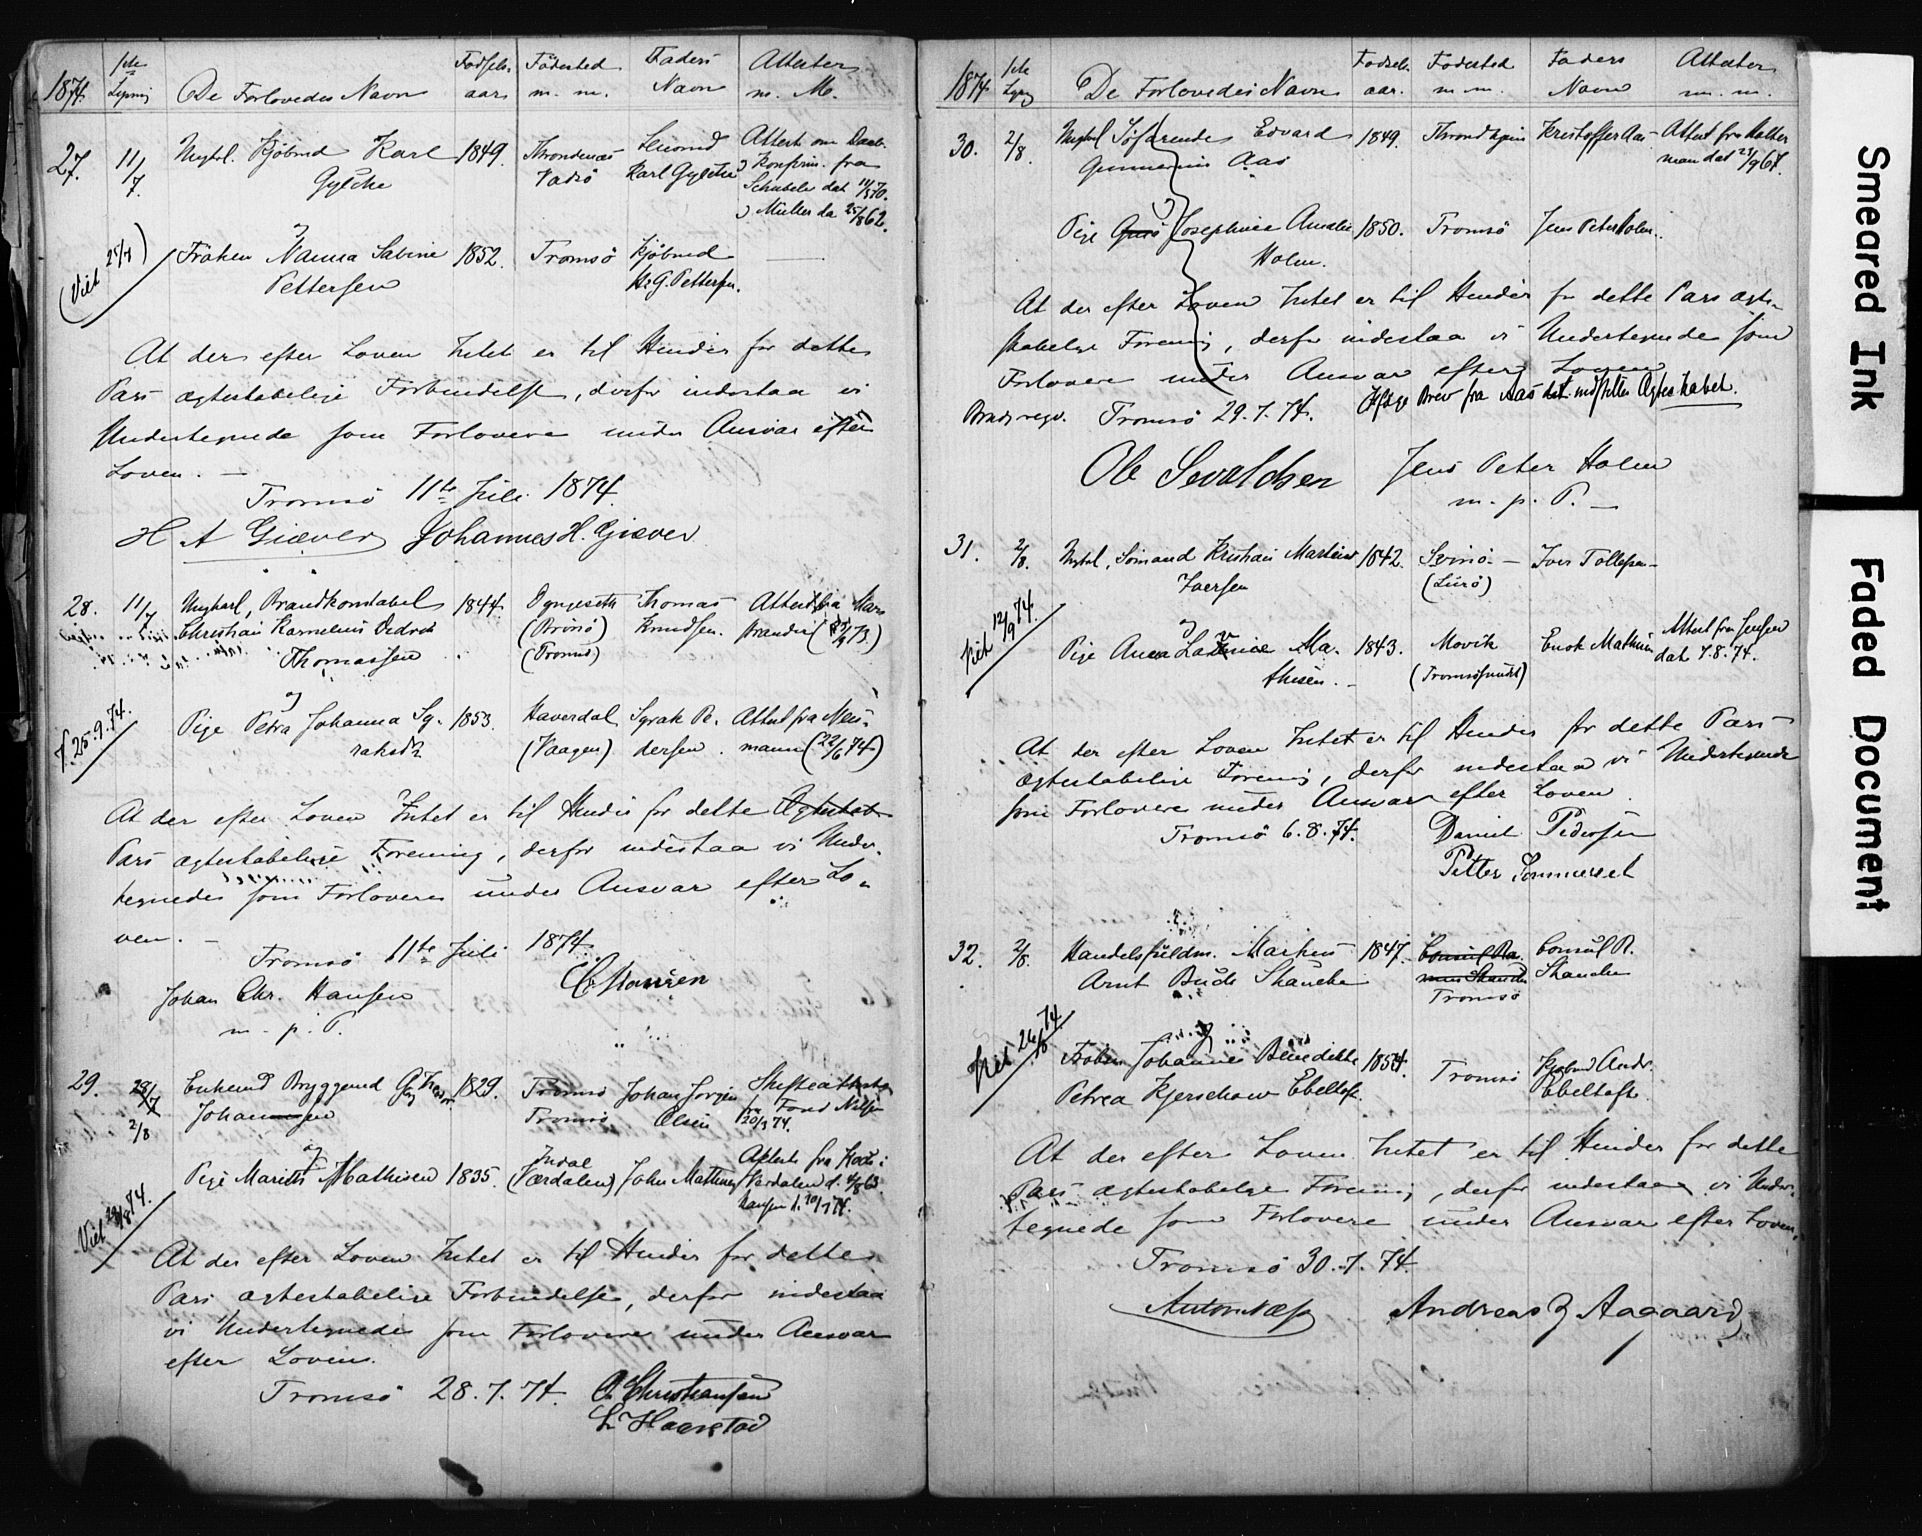 1874.
1ste Lysning
De Forlovedes Navn
Fødsels-aar
Fødested m. m.
Faders Navn
Attester m. M.
27.
11/7
Ungkl. Kjøbmd Karl
Gylche
1849.
Throndenæs
Vadsø
Karl Gylche
Attest om Daab
Konfirm. fra
Schubeler dat 11/5 70.
Müller da 25/8 62.
(Viet 25/7)
og
Frøken Nanna Sabine
Pettersen
1852.
Tromsø
Kjøbmd
H. G. Pettersen.
At der efter Loven Intet er til Hinder for dette
Pars ægteskabelige Forbindelse, derfor indestaa vi
Undertegnede som Forlovere under Ansvar efter
Loven. —
Tromsø 11te Juli 1874.
H A Giæver Johannes H. Giæver
28.
11/7
Ungkarl, Brandkonstabel
Christian Kornelius Dedrik
Thomassen
1844.
(Brönö)
(Tromsö)
Thomas
Knudsen.
Attest fra
og
V. 25.9.74.
Pige Petra Johanna Sy-
raksdr
1853.
Haverdal
(Vaagen)
Syrak Pe-
dersen.
Attest fra Neu-
mann (22/6 74)
At der efter Loven Intet er til Hinder for dette Ægteskab
Pars ægteskabelige Forening, derfor indestaa vi Under-
tegnede som Forlovere under Ansvar efter Lo-
ven. —
Tromsø 11te Juli 1874.
Johan Chr. Hansen
m. p. P.
29.
28/7
2/8
Enkemd Bryggemd
Johannesen
1829.
Tromsø
Tromsø
Johan Jørgen
Olsen
Skifteattest
fra Foad Nilsen
20/3 74.
og
Viet 28/8 74.
Pige Marith Mathisen
1835.
Indal
(Værdalen)
John Mathisen
Attest fra Kode i
Værdalen d. 4/8 63
Hansen d. 10/7 74.
At der efter Loven Intet er til Hinder for dette
Pars ægteskabelige Forbindelse, derfor indestaa
vi Undertegnede som Forlovere under Ansvar
efter Loven.
Tromsø 28.7.74. Christiansen
Haagstad
1874.
1ste Lysng
De Forlovedes Navn
Fødsels-aar.
Fødested m. m.
Faders Navn
Attester m. m.
30.
2/8.
Ungkl Søfarende Edvard
Gunnerius Aas
1849.
Throndhjem
Kristoffer Aas
Attest fra Halter
man dat 21/9 67.
og
Pige Josephine Amalie
Holm.
1850.
Tromsø
Jens Peter Holm.
At der efter Loven Intet er til Hinder for dette Pars ægte-
skabelige Forening, derfor indestaa vi Undertegnede som
Forlovere under Ansvar efter Loven
Ifølge Brev fra Aas indstilles Ægteskabet.
Tromsø 29.7.74.
Ole Sivaldsen Jens Peter Holm
m. p. P. —
31.
2/8.
Ungkl, Sømand Kristian Martin
Iversen
1842.
Svinö —
(Lurö)
Iver Tollefsen
Viet 12/9 74.
og
Pige Anna Ma-
thisen. —
1843.
Movik
(Tromsøsundet)
Enok Mathisen
Attest fra Jensen
dat 7.8.74.
At der efter Loven Intet er til Hinder for dette Pars
ægteskabelige Forening, derfor indestaa vi Undertegnede
som Forlovere under Ansvar efter Loven.
Tromsø 6.8.74.
Daniel Pedersen
Petter Sommerset
32.
2/8.
Handelsfuldm. Markus
Arnt Buck Skancke
1847.
Tromsø
Consul R.
Skancke
Viet 26/8 74
og
Frøken Johanne Benedikte
Petrea Kjerschow Ebeltoft.
1854.
Tromsø
Kjøbmd Andr.
Ebeltoft.
At der efter Loven Intet er til Hinder for dette
Pars ægteskabelige Forening, derfor indestaa vi Under-
tegnede som Forlovere under Ansvar efter Loven.
Tromsø 30.7.74.
Anton Næss Andreas Z Aagaard
Smeared Ink
Faded Document